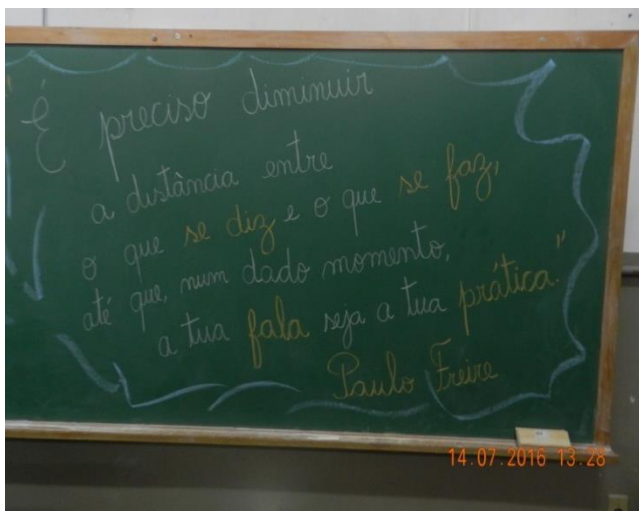 "É preciso diminuir
a distância entre
o que se diz e o que se faz,
até que, num dado momento,
a tua fala seja a tua prática."
Paulo Freire
14.07.2016 13:28